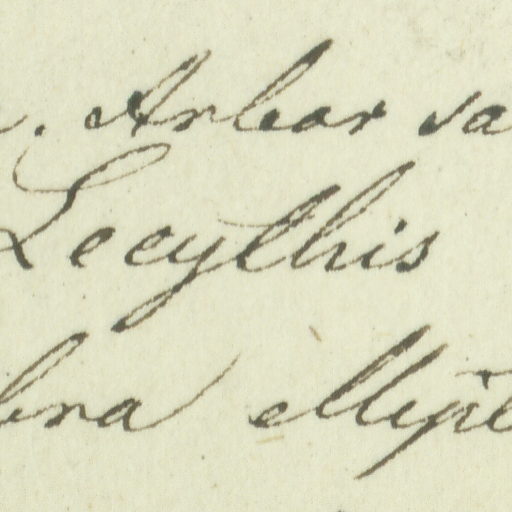 Arbor sa
Lecythis
bra ellipt